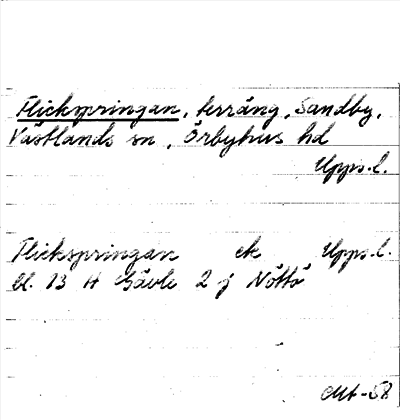 Flickspringan, terräng, Sandby,
Västlands sn, Örbyhus hd
Upps.l.
Flickspringan ek Upps.l.
bl. 13 H Gävle 2 j Nöttö